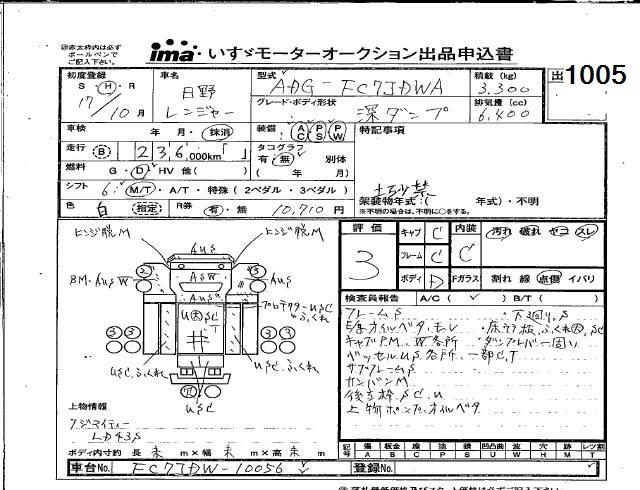 ima いすゞモーターオークション出品申込書
出1005
※赤太枠内は必ず
ボールペンで
ご記入下さい。
初度登録 車名 型式 積載 (kg)
S・H・R 日野 ADG-FC7JDWA 3,300
17/10月 レンジャー グレード・ボディ形状 深ダンプ 排気量 (cc) 6,400
車検 年 月・抹消 装備 AC PS PW 特記事項
走行 B 236,000km タコグラフ 有・無 別体
燃料 G・D・HV 他( ) ( 年 月)
シフト 6 M/T・A/T・特殊(2ペダル・3ペダル) 土砂禁
架装物年式:( 年式)・不明
色 白 指定 R券 有・無 10,710円 ※不明の場合は、不明に○をして下さい。
評価 3
キャブ C 内装 C 汚れ 破れ ヤニ スレ
フレーム C
ボディ D Fガラス 割れ 線 点傷 イバリ
検査員報告 A/C( ) B/T( )
ヒンジ脱M AUS ヒンジ脱M
2 ASW 3 AUS
BM・AUSW
プロテクターUSC
ふくれ
3 3
USC、ふくれ
USC
フレームS ・下回りS
キャブPM、W各所
ベッセルUS各所、一部C,T
サブフレームS
カンバンM
後う枠SC,U
上物ポンプオイルベタ
上物情報
ボディ内寸約 長 未 m×幅 未 m×高 未 m
記号 傷A 板金B 腐C 塗P 錆S 凹凸曲U 波W 穴H 跡M レツ割T
車台No. FC7JDW-10056 登録No.